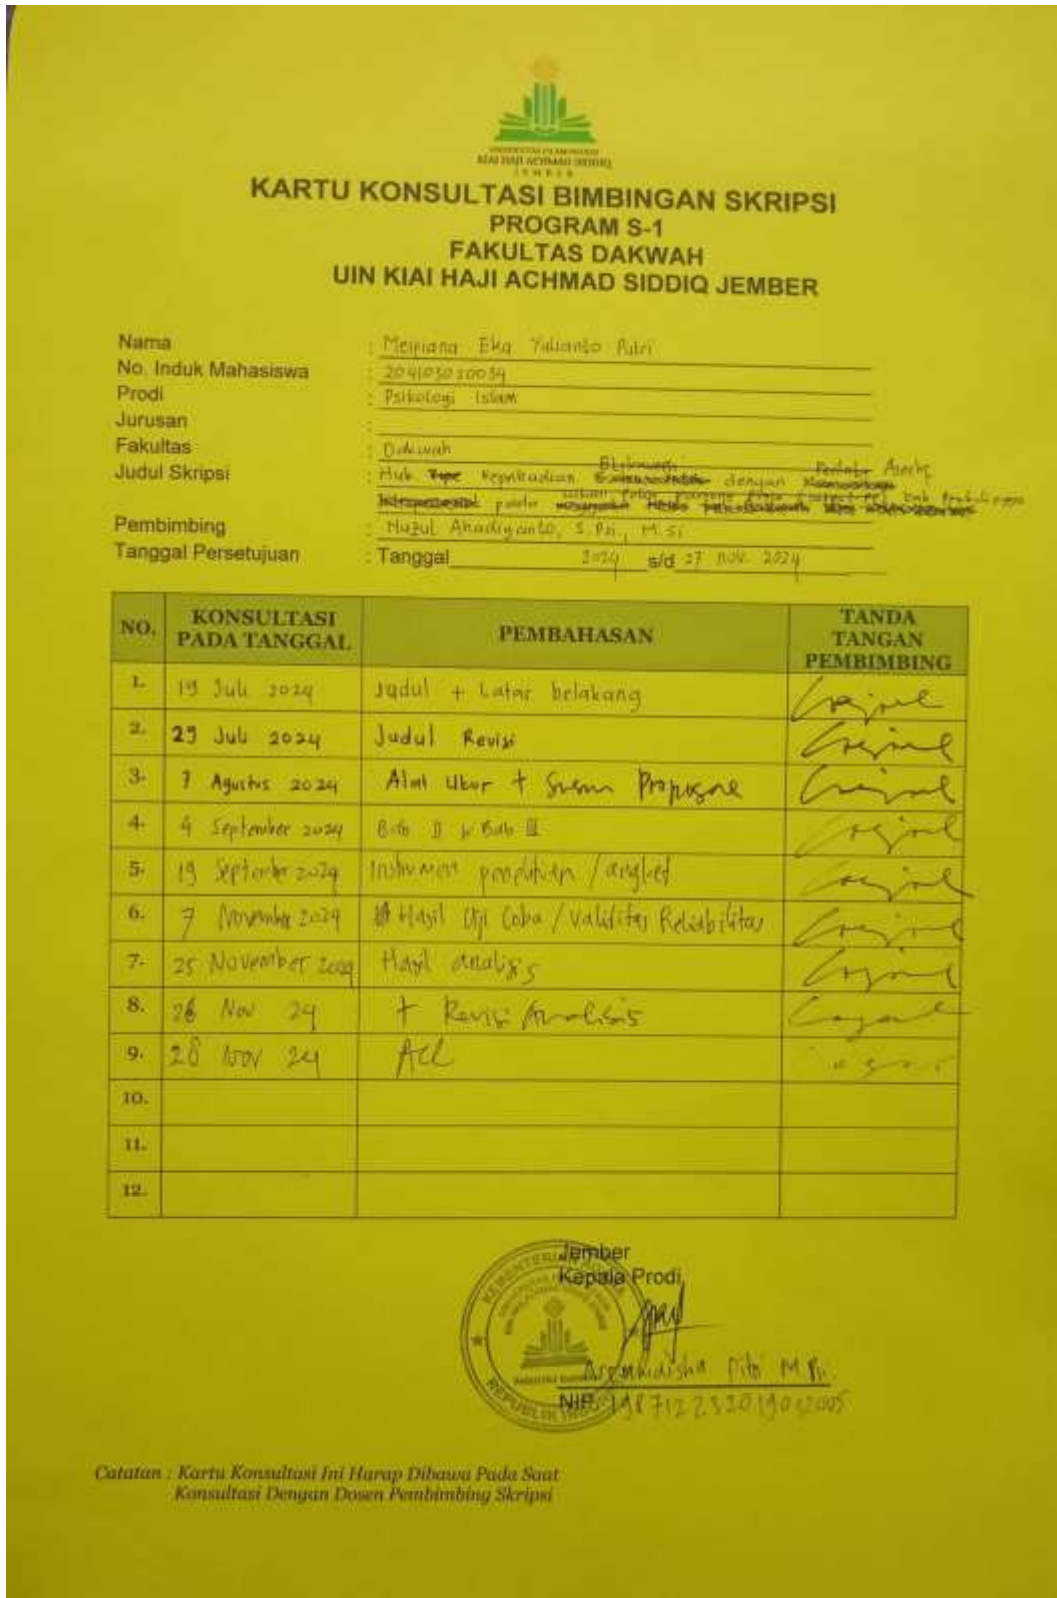 UNIVERSITAS ISLAM NEGERI
KIAI HAJI ACHMAD SIDDIQ
JEMBER
KARTU KONSULTASI BIMBINGAN SKRIPSI
PROGRAM S-1
FAKULTAS DAKWAH
UIN KIAI HAJI ACHMAD SIDDIQ JEMBER
Nama : Eka Yulianto Putri
No. Induk Mahasiswa : 204103050034
Prodi : Psikologi Islam
Jurusan :
Fakultas : Dakwah
Judul Skripsi : Hub Kepribadian dengan
pada
Pembimbing : Nuzul Ahadiyanto, S.Psi, M.Si
Tanggal Persetujuan : Tanggal 2024 s/d 27 nov. 2024
NO. KONSULTASI PADA TANGGAL PEMBAHASAN TANDA TANGAN PEMBIMBING
1. 19 Juli 2024 Judul + Latar belakang
2. 29 Juli 2024 Judul Revisi
3. 7 Agustus 2024 Alat Ukur +
4. 4 September 2024 Bab II Bab III
5. 19 September 2024 Instrumen penelitian / angket
6. 7 November 2024 Hasil Uji Coba / Validitas Reliabilitas
7. 25 November 2024 Hasil analisis
8. 26 Nov 24 + Revisi Analisis
9. 28 Nov 24 Acc
10.
11.
12.
Jember
Kepala Prodi,
KEMENTERIAN AGAMA
REPUBLIK INDONESIA
Fitri M.Psi
NIP. 198712232019032005
Catatan : Kartu Konsultasi Ini Harap Dibawa Pada Saat
Konsultasi Dengan Dosen Pembimbing Skripsi